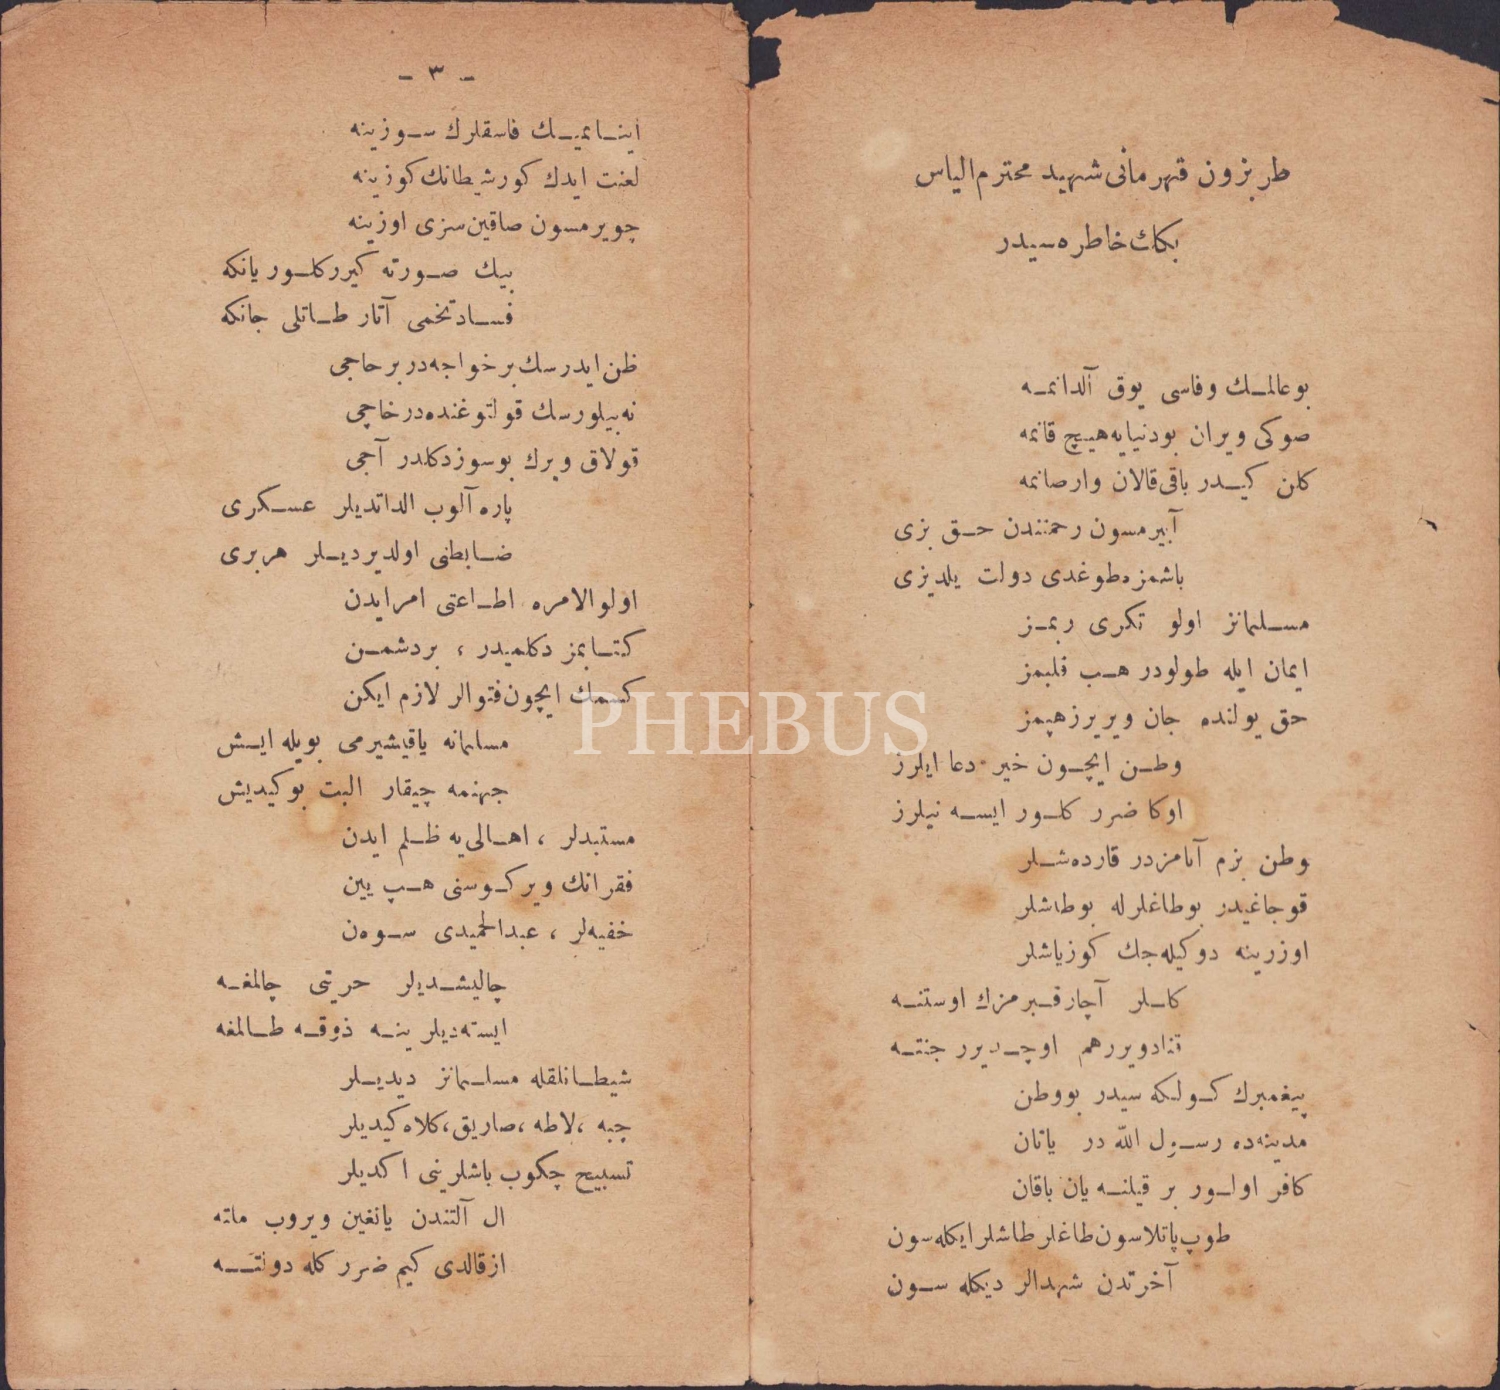 طربزون قهرمانی شهید محترم الیاس
بكك خاطره سیدر
بو عالمـك وفاسی یوق آلدانمـه
صوكی ویران بودنیایه هیـچ قانمه
كلن كیـدر باقی قالان وارصانمه
آییرمسون رحمتندن حـق بزی
باشمزه طوغدی دولت یلدیزی
مسـلمانز اولو تكری ربمـز
ایمان ایله طولودر هـپ قلبمز
حق یولنده جان ویریرز هپمز
وطـن ایچـون خیر دعا ایلرز
اوكا ضرر كلـور ایسـه نیلرز
وطن بزم آنامزدر قارده شـلر
قوجاغیدر بوطاغلرله بوطاشلر
اوزرینه دوكیله جك كوزیاشلر
كلـر آچار قـبرمزك اوستنـه
قناد ویررهم اوچـدیرر جنتـه
پیغمبرك كـولكه سیدر بووطن
مدینه ده رسـول الله در یاتان
كافر اولـور بر قیلنـه یان باقان
طوپ پاتلاسون طاغلر طاشلر ایكله سون
آخرتدن شهدالر دیكله سـون
PHEBUS
- ٣ -
اینـانمیـك فاسقلرك سـوزینه
لعنت ایدك كورشیطانك كوزینه
چویرمسون صاقین سزی اوزینه
بیك صـورته كیرر كلـور یانكه
فسـاد تخمی آتار طـاتلی جانكه
ظن ایدرسك بر خواجه در بر حاجی
نه بیلورسك قولتوغنده در خاچی
قولاق ویرك بوسوز دكلدر آجی
پاره آلوب الداتدیلر عسـكری
ضـابطنی اولدیردیـلر هر بری
اولوالامره اطـاعتی امر ایدن
كتـابمز دكلمیدر ، بر دشمـن
كسمك ایچون فتوالر لازم ایكن
مسلمانه یاقیشیرمی بویله ایـش
جهنمه چیقار البت بوكیدیش
مستبدلر ، اهـالی یه ظـلم ایدن
فقرانك ویركـوسنی هـپ یین
خفیه لر ، عبدالحمیدی سـوه ن
چالیشـدیلر حریتی چالمغـه
ایسته دیلر ینـه ذوقـه طـالمغه
شیطـانلقله مسلـمانز دیدیـلر
جبه ، لاطه ، صاریق ، كلاه كیدیلر
تسبیح چكوب باشلرینی اكدیلر
ال آلتندن یانغین ویروب ملته
از قالدی كیم ضرر كله دولتـه